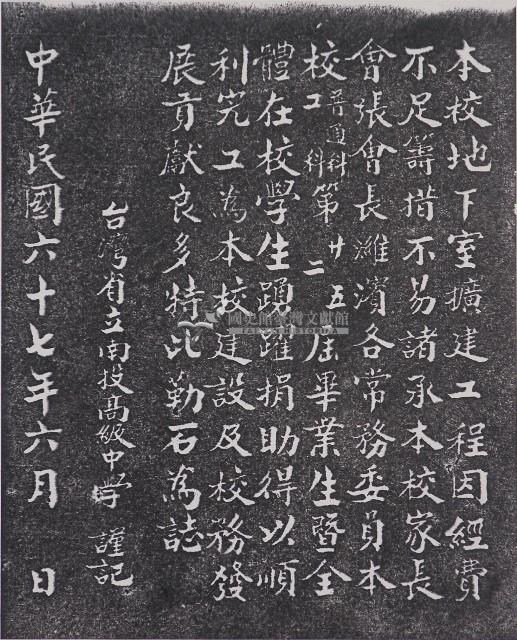 本校地下室擴建工程因經費
不足籌措不易諸承本校家長
會張會長濰濱各常務委員本
校普通科第廿五屆畢業生暨全
工科二
體在校學生踴躍捐助得以順
利完工為本校建設及校務發
展貢獻良多特此勒石為誌
台灣省立南投高級中學 謹記
中華民國六十七年六月 日
國史館臺灣文獻館
TAIWAN HISTORICA